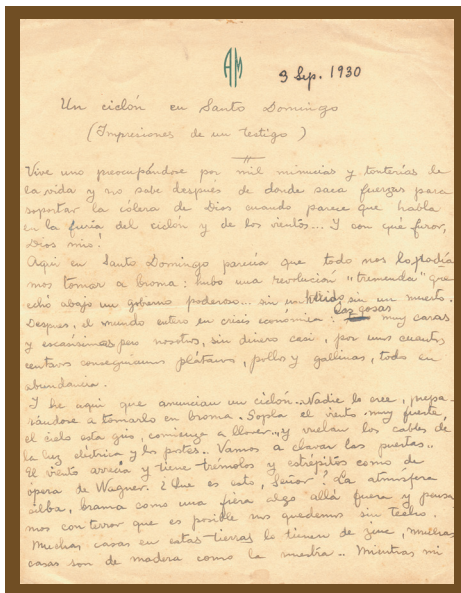 AM
3 Sep. 1930
Un ciclón en Santo Domingo
(Impresiones de un testigo)
Vive uno preocupándose por mil minucias y tonterías de
la vida y no sabe después de donde saca fuerzas para
soportar la cólera de Dios cuando parece que habla
en la furia del ciclón y de los vientos... Y con qué furor,
Dios mío!
Aqui en Santo Domingo parecía que todo nos lo podía
mos tomar a broma: hubo una revolución "tremenda" que
echó abajo un gobierno poderoso... sin un herido, sin un muerto.
Despues, el mundo entero en crisis económica: las cosas muy caras
y escasísimas pero nosotros, sin dinero casi, por unos cuantos
centavos conseguiamos plátanos, pollos y gallinas, todo en
abundancia.
Y he aqui que anuncian un ciclón... Nadie lo cree, prepa-
rándose a tomarlo en broma. Sopla el viento muy fuerte,
el cielo esta gris, comienza a llover... y vuelan los cables de
la luz eléctrica y los postes.. Vamos a clavar las puertas..
El viento arrecia y tiene trémolos y estrépitos como de
ópera de Wagner. ¿Que es esto, Señor? La atmósfera
silba, brama como una fiera algo allá fuera y pensa
mos con terror que es posible nos quedemos sin techo.
Muchas casas en estas tierras lo tienen de zinc, muchas
casas son de madera como la nuestra.. Mientras mi